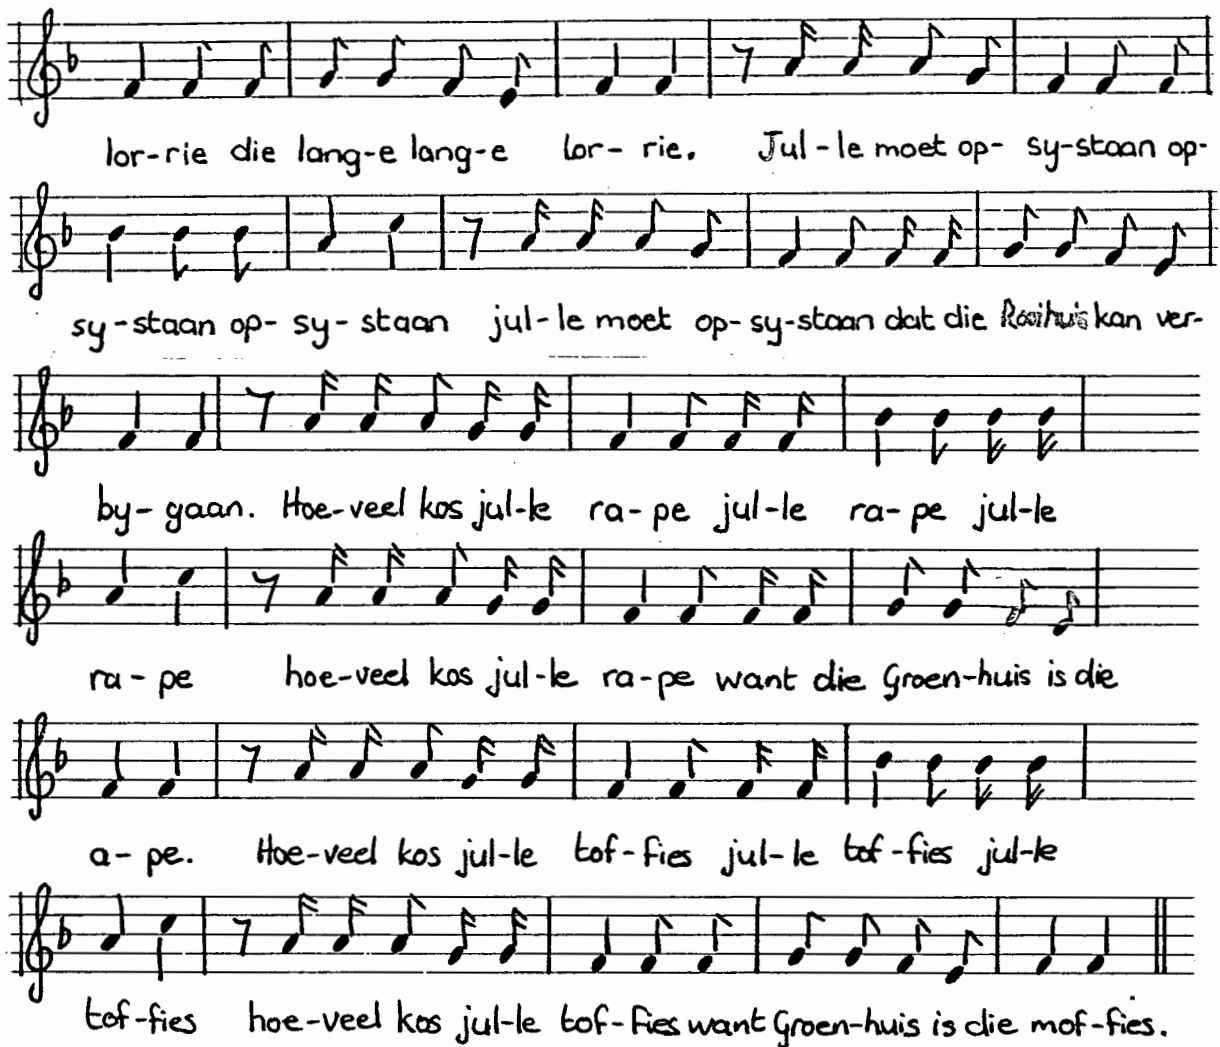 lor-rie die lang-e lang-e lor-rie. Jul-le moet op- sy-staan op-
sy-staan op- sy-staan jul-le moet op-sy-staan dat die Rooihuis kan ver-
by-gaan. Hoe-veel kos jul-le ra-pe jul-le ra-pe jul-le
ra-pe hoe-veel kos jul-le ra-pe want die Groen-huis is die
a-pe. Hoe-veel kos jul-le tof-fies jul-le tof-fies jul-le
tof-fies hoe-veel kos jul-le tof-fies want Groen-huis is die mof-fies.